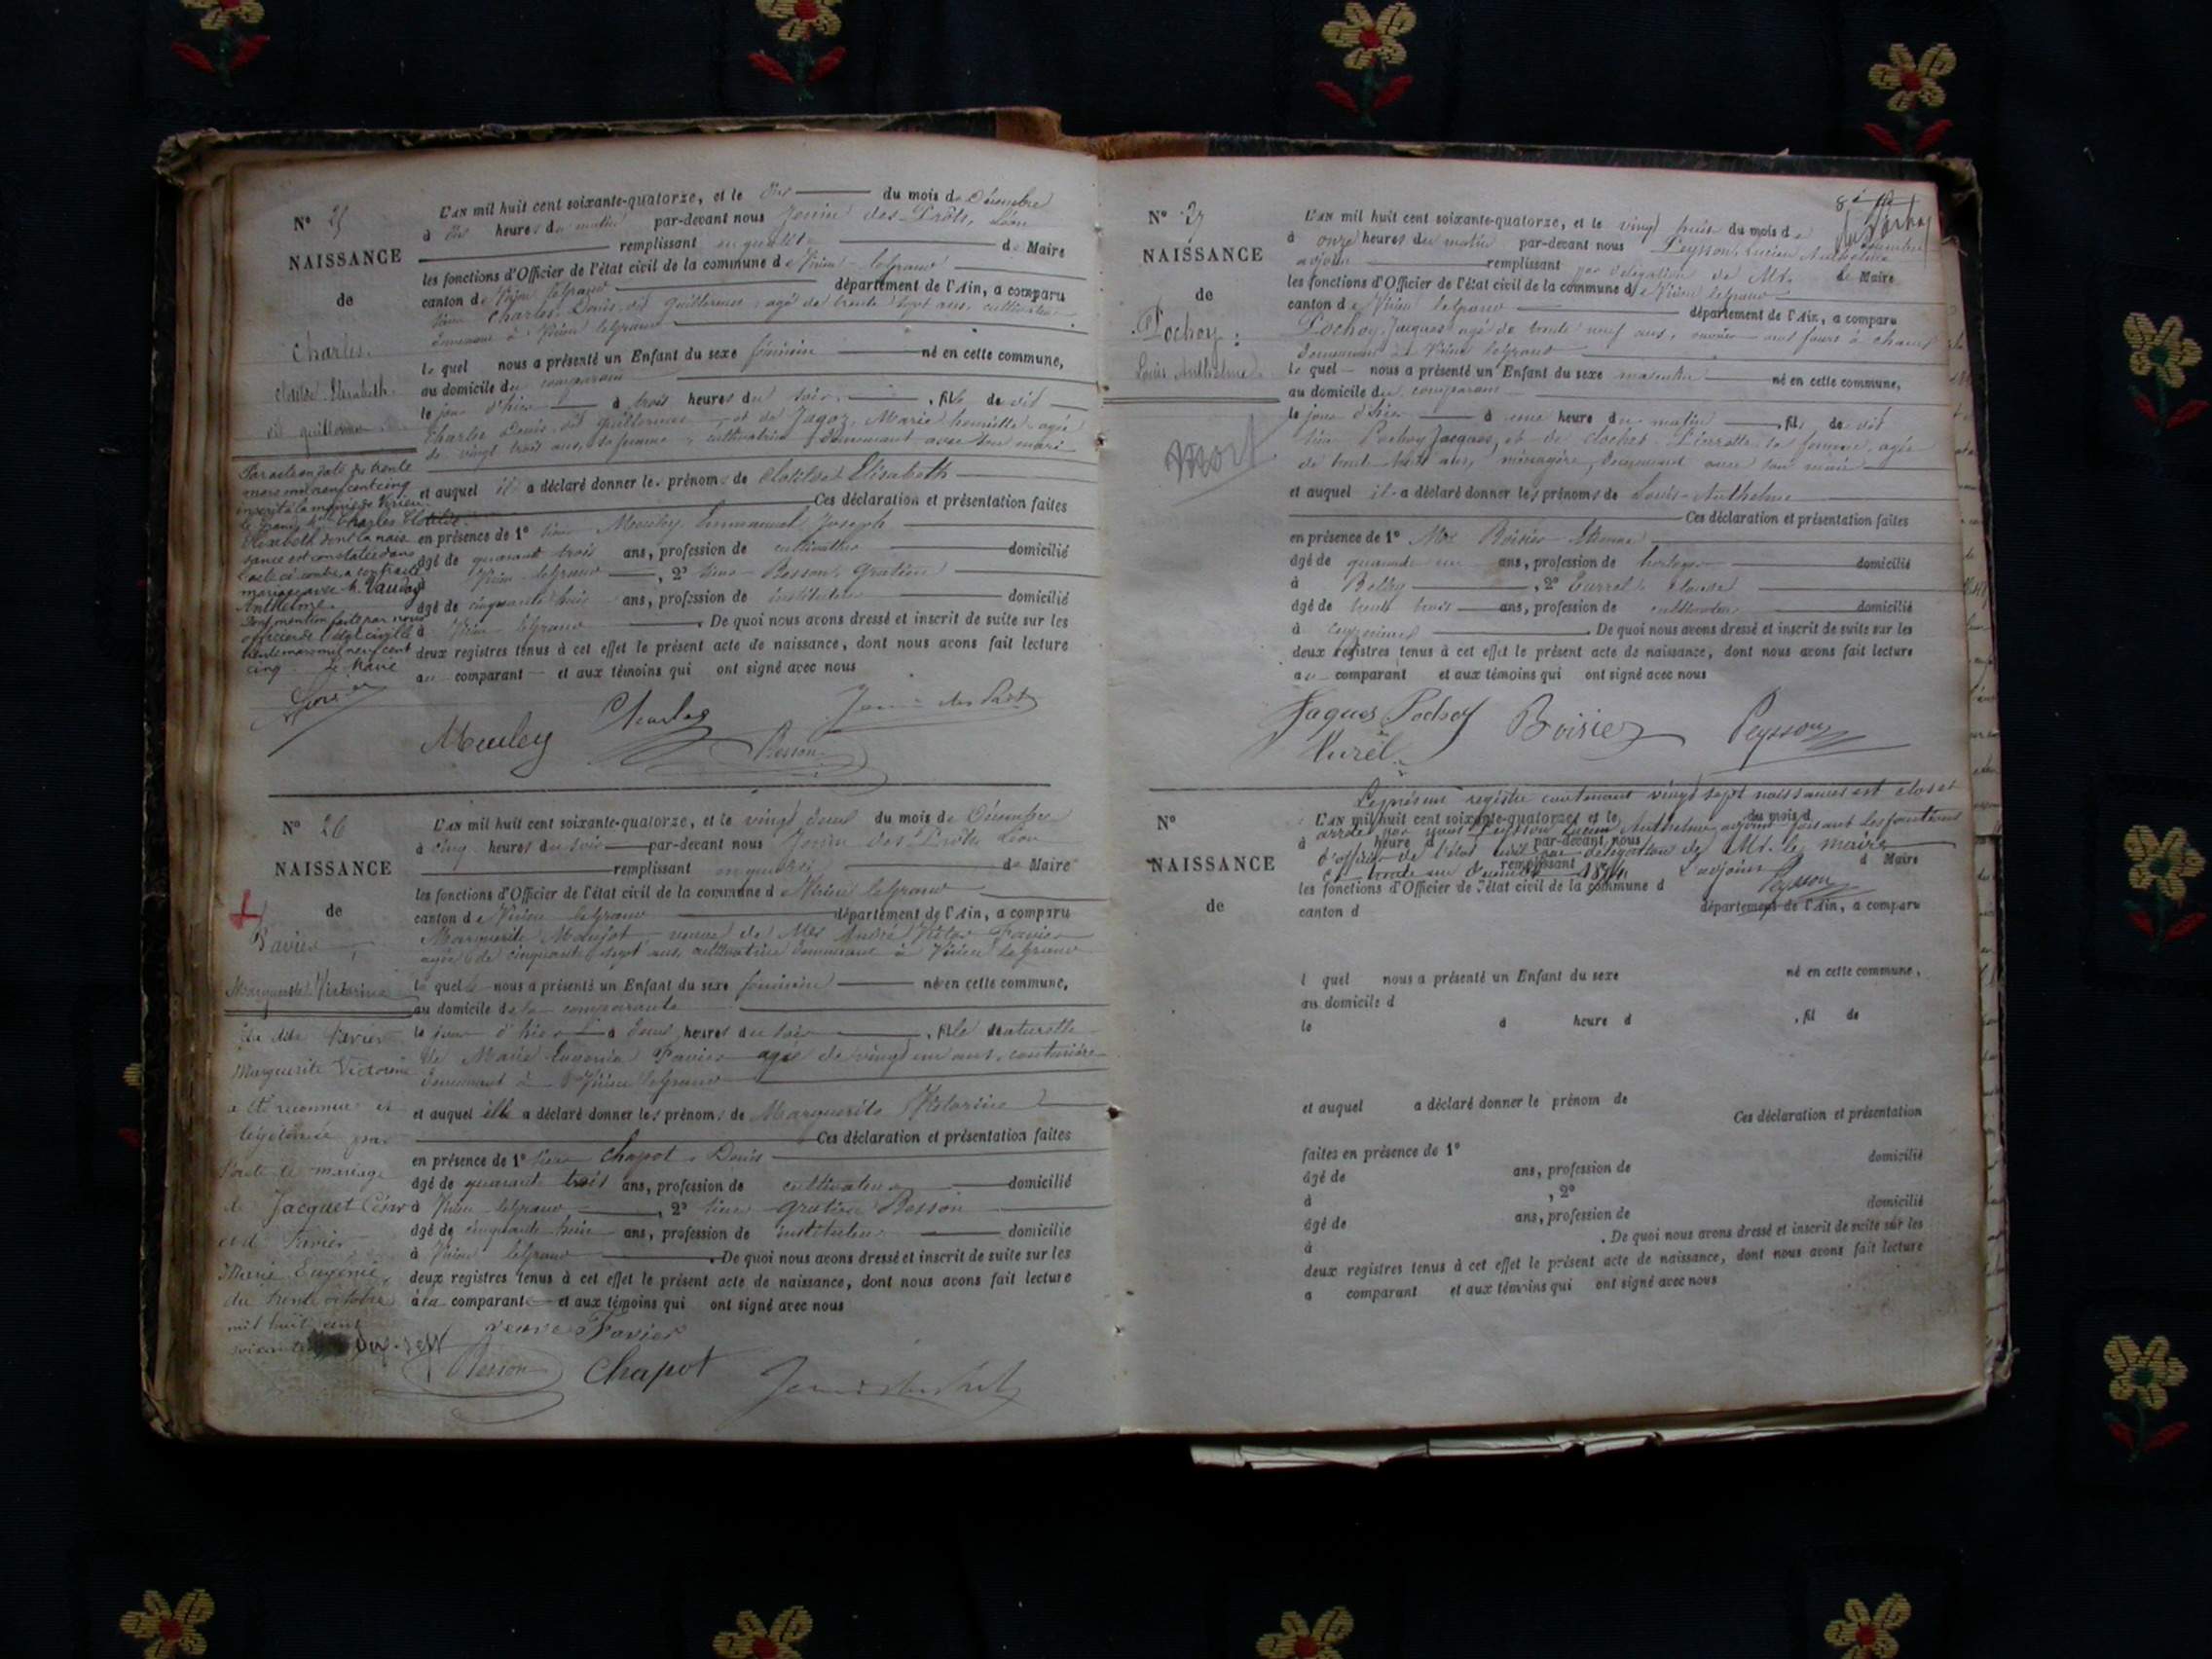 N° 25
NAISSANCE
de
Charles.
Clotilde Elisabeth.
dit guillermus
Par acte en date du trente
mars mil neuf cent cinq
inscrit à la mairie de Virieu
le grand, Charles Clotilde
Elisabeth dont la nais
sance est constatée dans
l'acte ci contre, a contracté
mariage avec Vaudoz
Anthelme.
Dont mention faite par nous
officier de l'état civil le
trente mars mil neuf cent
cinq. Le Maire
L'AN mil huit cent soixante-quatorze, et le dix du mois de Décembre
à dix heures du matin par-devant nous Jenin des Prôts, Léon
remplissant en qualité de Maire
les fonctions d'Officier de l'état civil de la commune de Virieu-leGrand
canton de Virieu leGrand département de l'Ain, a comparu
sieur Charles Louis, dit guillermus, agé de trente sept ans, cultivateur
demeurant à Virieu leGrand
lequel nous a présenté un Enfant du sexe féminin né en cette commune,
au domicile du comparant
le jour d'hier à trois heures du soir, fille de dit
Charles Louis, dit guillermus et de Jagoz, Marie henriette agée
de vingt trois ans, sa femme, cultivatrice demeurant avec son mari
et auquel il a déclaré donner les prénoms de Clotilde Elisabeth
Ces déclaration et présentation faites
en présence de 1° sieur Meuley, Emmanuel Joseph
âgé de quarante trois ans, profession de cultivateur domicilié
à Virieu leGrand, 2° sieur Besson, Gratien
âgé de cinquante huit ans, profession de instituteur domicilié
à Virieu leGrand. De quoi nous avons dressé et inscrit de suite sur les
deux registres tenus à cet effet le présent acte de naissance, dont nous avons fait lecture
au comparant et aux témoins qui ont signé avec nous
Meuley Charles Jenin des Prôts
Besson
N° 26
NAISSANCE
de
Favier
Marguerite Victorine
La dite Favier
Marguerite Victorine
a été reconnue et
légitimée par
l'acte de mariage
de Jacquet César
et de Favier
Marie Eugénie,
du trente octobre
mil huit cent
soixante dix-sept
L'AN mil huit cent soixante-quatorze, et le vingt deux du mois de Décembre
à cinq heures du soir par-devant nous Jenin des Prôts Léon
remplissant en qualité de Maire
les fonctions d'Officier de l'état civil de la commune de Virieu leGrand
canton de Virieu leGrand département de l'Ain, a comparu
Marguerite veuve de Mr André Victor Favier
agée de cinquante sept ans, cultivatrice demeurant à Virieu leGrand
laquelle nous a présenté un Enfant du sexe féminin né en cette commune,
au domicile de la comparante
le jour d'hier à deux heures du soir, fille naturelle
de Marie Eugénie Favier agée de vingt un ans, couturière
demeurant à Virieu leGrand
et auquel elle a déclaré donner les prénoms de Marguerite Victorine
Ces déclaration et présentation faites
en présence de 1° sieur Chapot Denis
âgé de quarante trois ans, profession de cultivateur domicilié
à Virieu leGrand, 2° sieur Gratien Besson
âgé de cinquante huit ans, profession de instituteur domicilié
à Virieu leGrand. De quoi nous avons dressé et inscrit de suite sur les
deux registres tenus à cet effet le présent acte de naissance, dont nous avons fait lecture
à la comparante et aux témoins qui ont signé avec nous
veuve Favier
Besson Chapot Jenin des Prôts
N° 27
NAISSANCE
de
Pochoy:
Louis Anthelme.
mort
L'AN mil huit cent soixante-quatorze, et le vingt huit du mois de décembre
à onze heures du matin par-devant nous Peysson, Lucien Anthelme
adjoint remplissant par délégation de Mr. le Maire
les fonctions d'Officier de l'état civil de la commune de Virieu leGrand
canton de Virieu leGrand département de l'Ain, a comparu
Pochoy, Jacques agé de trente neuf ans, ouvrier aux fours à chaux
demeurant à Virieu leGrand
lequel nous a présenté un Enfant du sexe masculin né en cette commune,
au domicile du comparant
le jour d'hier à une heure du matin, fils de dit
sieur Pochoy Jacques, et de Clochet Pierrette sa femme, agée
de trente huit ans, ménagère, demeurant avec son mari
et auquel il a déclaré donner les prénoms de Louis-Anthelme
Ces déclaration et présentation faites
en présence de 1° Mr Boisier Etienne
âgé de quarante un ans, profession de horloger domicilié
à Belley, 2° Claude
âgé de trente trois ans, profession de cultivateur domicilié
à Ceyzérieu. De quoi nous avons dressé et inscrit de suite sur les
deux registres tenus à cet effet le présent acte de naissance, dont nous avons fait lecture
au comparant et aux témoins qui ont signé avec nous
Jaques Pochoy Boisier Peysson
Le présent registre contenant vingt sept naissances est clos et
arrêté par nous Peysson Lucien Anthelme adjoint faisant les fonctions
d'officier de l'état civil par délégation de Mr. le maire
ce trente un décembre 1874 L'adjoint
Peysson
N°
NAISSANCE
de
L'AN mil huit cent soixante-quatorze, et le du mois d
à heure d par-devant nous
remplissant d Maire
les fonctions d'Officier de l'état civil de la commune d
canton d département de l'Ain, a comparu
l quel nous a présenté un Enfant du sexe né en cette commune,
au domicile d
le à heure d , fil de
et auquel a déclaré donner le prénom de
Ces déclaration et présentation
faites en présence de 1°
âgé de ans, profession de domicilié
à , 2°
âgé de ans, profession de domicilié
à . De quoi nous avons dressé et inscrit de suite sur les
deux registres tenus à cet effet le présent acte de naissance, dont nous avons fait lecture
a comparant et aux témoins qui ont signé avec nous